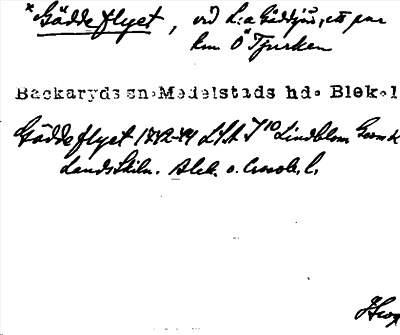 *Gäddeflyet, vid L:a Gäddsjö, ett par
km. Ö Tjurken
Backaryds sn. Medelstads hd. Blek. l
Gäddeflyet 1742-49 LSA I 10 Lindblom Geom K
Landsskiln. Blek. o. Cronob. l.